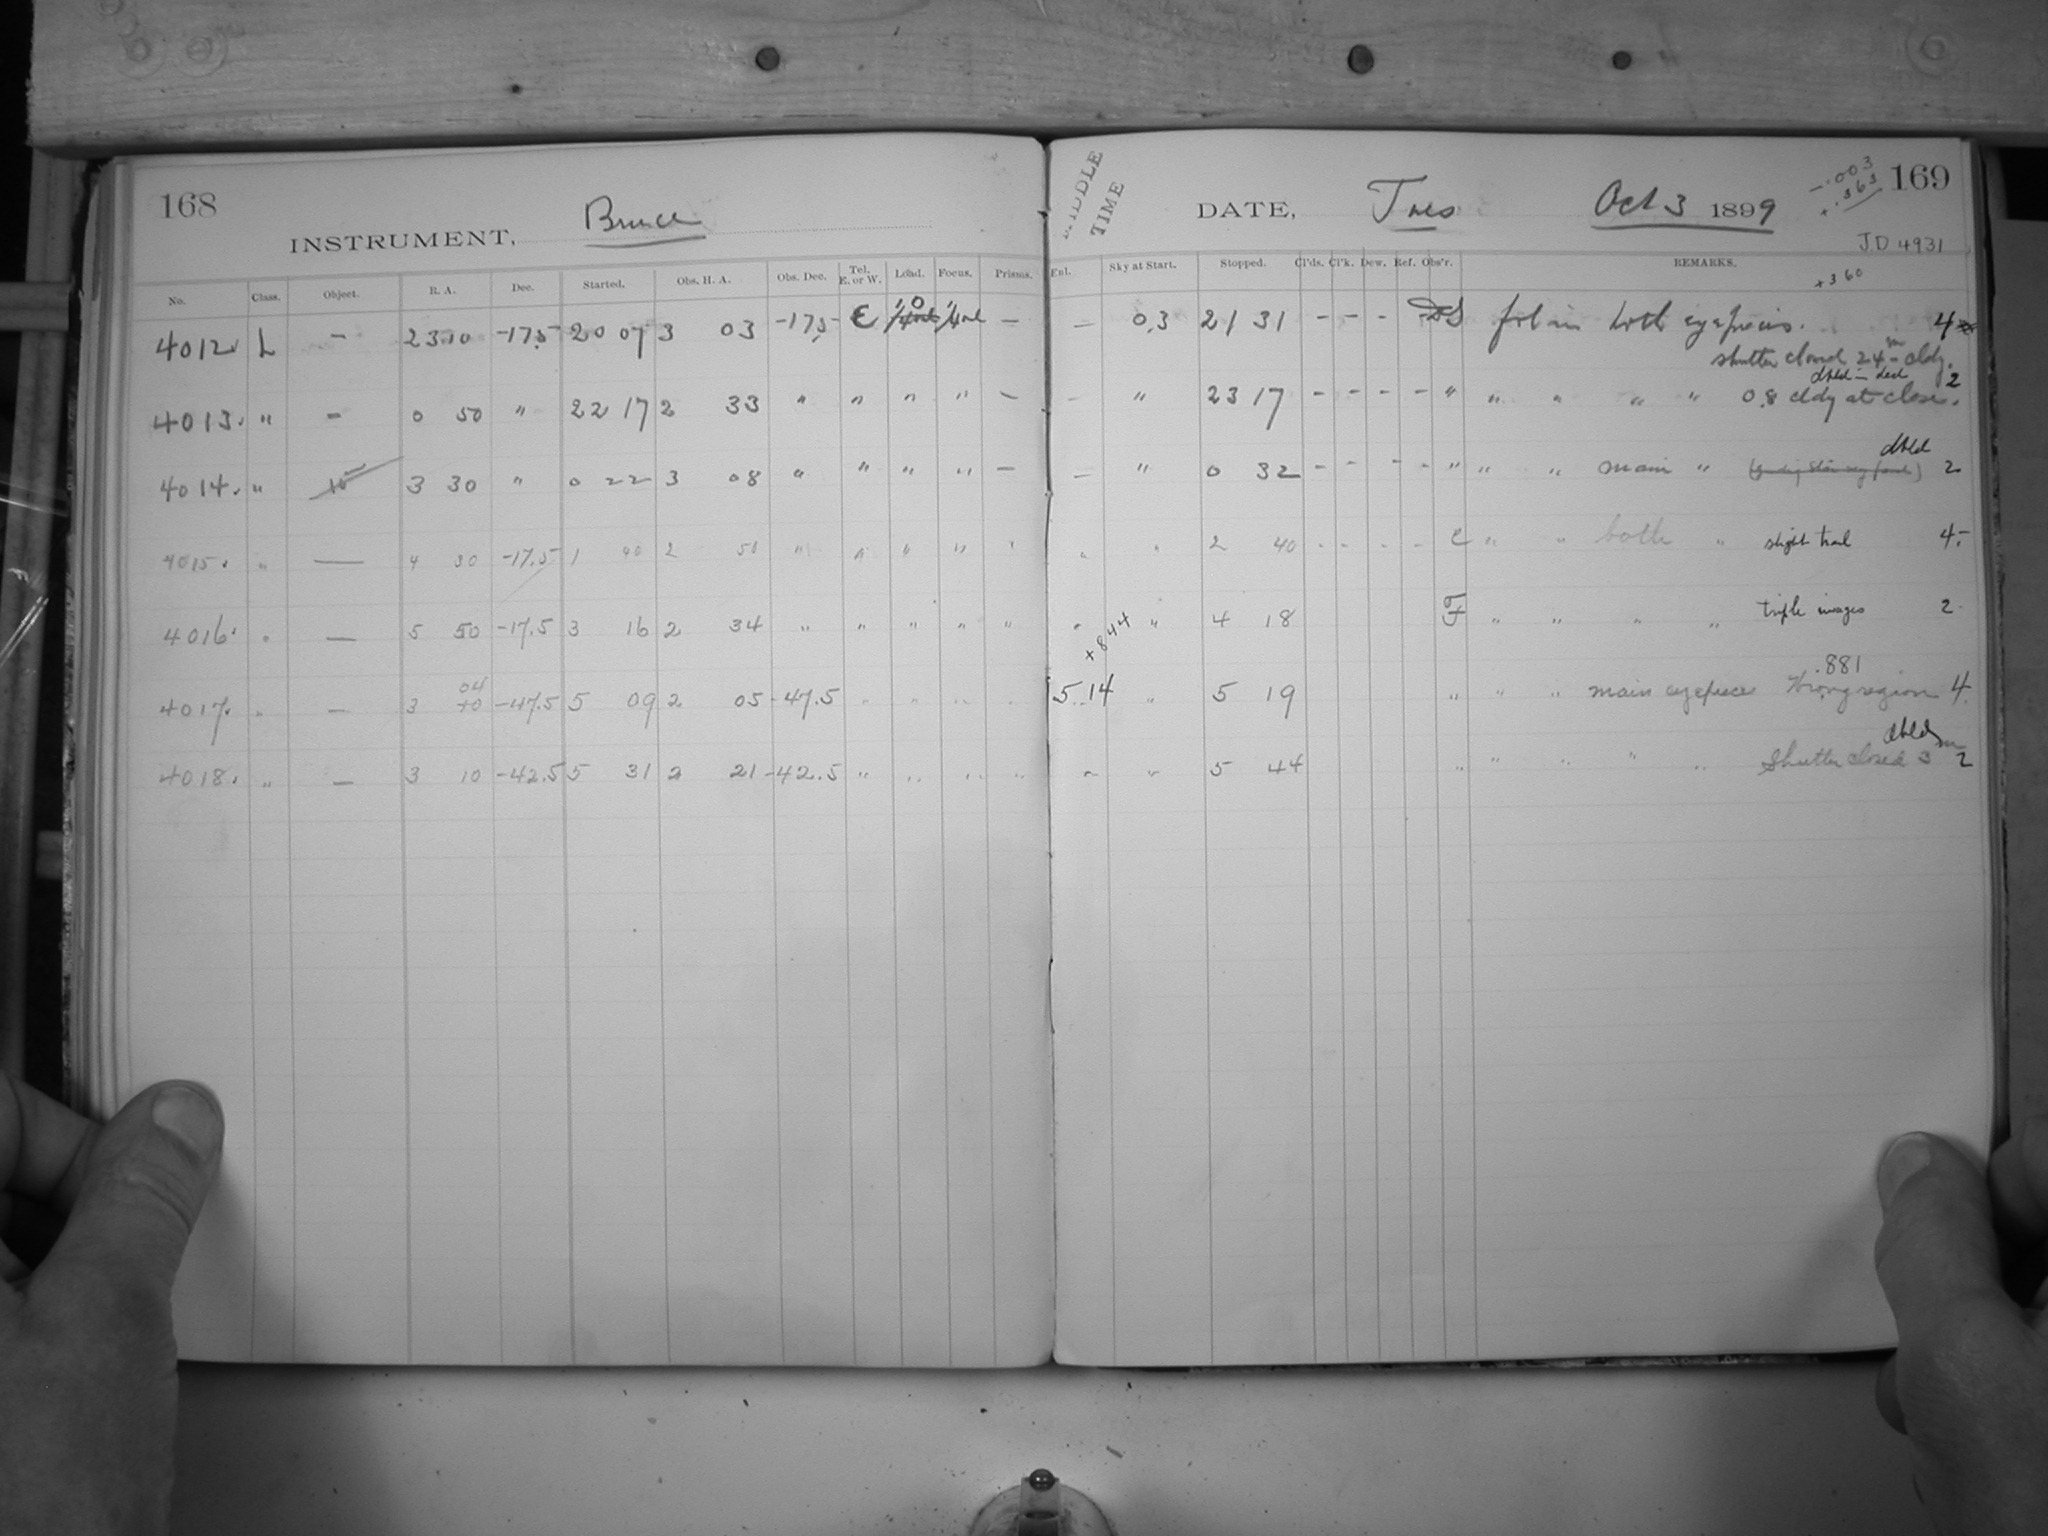 168
INSTRUMENT, Bruce
No. Class. Object. R. A. Dec. Started. Obs. H. A. Obs. Dec. Tel. E. or W. Load. Focus. Prisms.
4012. L – 23 10 -17.5 20 07 3 03 -17.5 E –
4013. " – 0 50 " 22 17 2 33 " " " " –
4014. " 3 30 " 0 22 3 08 " " " " –
4015. " — 4 30 -17.5 1 40 2 50 " " " " "
4016. " — 5 50 -17.5 3 16 2 34 " " " " "
4017. " — 3 04 -47.5 5 09 2 05 -47.5 " " " "
4018. " — 3 10 -42.5 5 31 2 21 -42.5 " " " "
MIDDLE TIME
DATE, Tues Oct 3 1899
-.003
+.363
169
JD 4931
Enl. Sky at Start. Stopped. Cl'ds. Cl'k. Dew. Ref. Obs'r. REMARKS.
+360
– 0.3 21 31 – – – fol in both eyepieces. 4
shutter closed 24m cldy.
dbld in decl 2
– " 23 17 – – – – " " " " " 0.8 cldy at close.
dbld
– " 0 32 – – – – " " " main " 2
" " 2 40 – – – – C " " both " slight trail 4-
" " 4 18 " " " " triple images 2
+844
.881
5.14 " 5 19 " " " main eyepiece Wrong region 4.
dbld
" " 5 44 " " " " " Shutter closed 3m 2